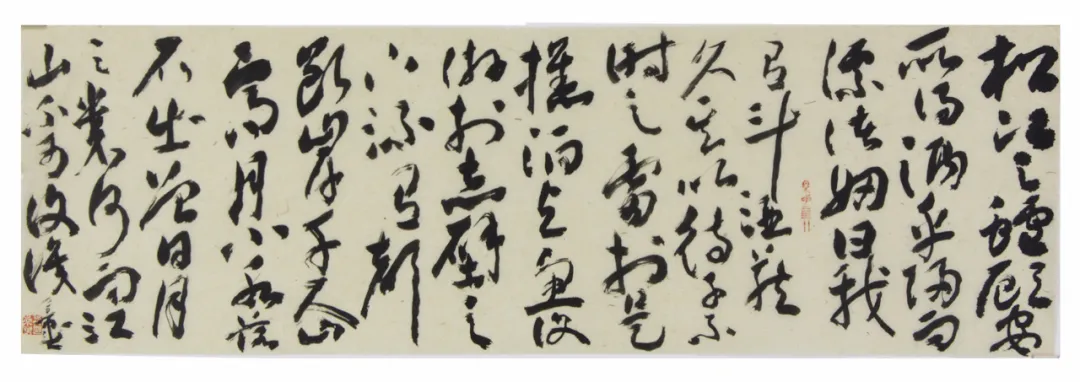 松江之鱸顧安
所得酒乎歸而
謀諸婦曰我
有斗酒藏
久矣以待子不
時之需於是
攜酒與魚復
遊於赤壁之
下流有聲
斷岸千尺山
高月小水落
石出曾日月
之幾何而江
山不可復識